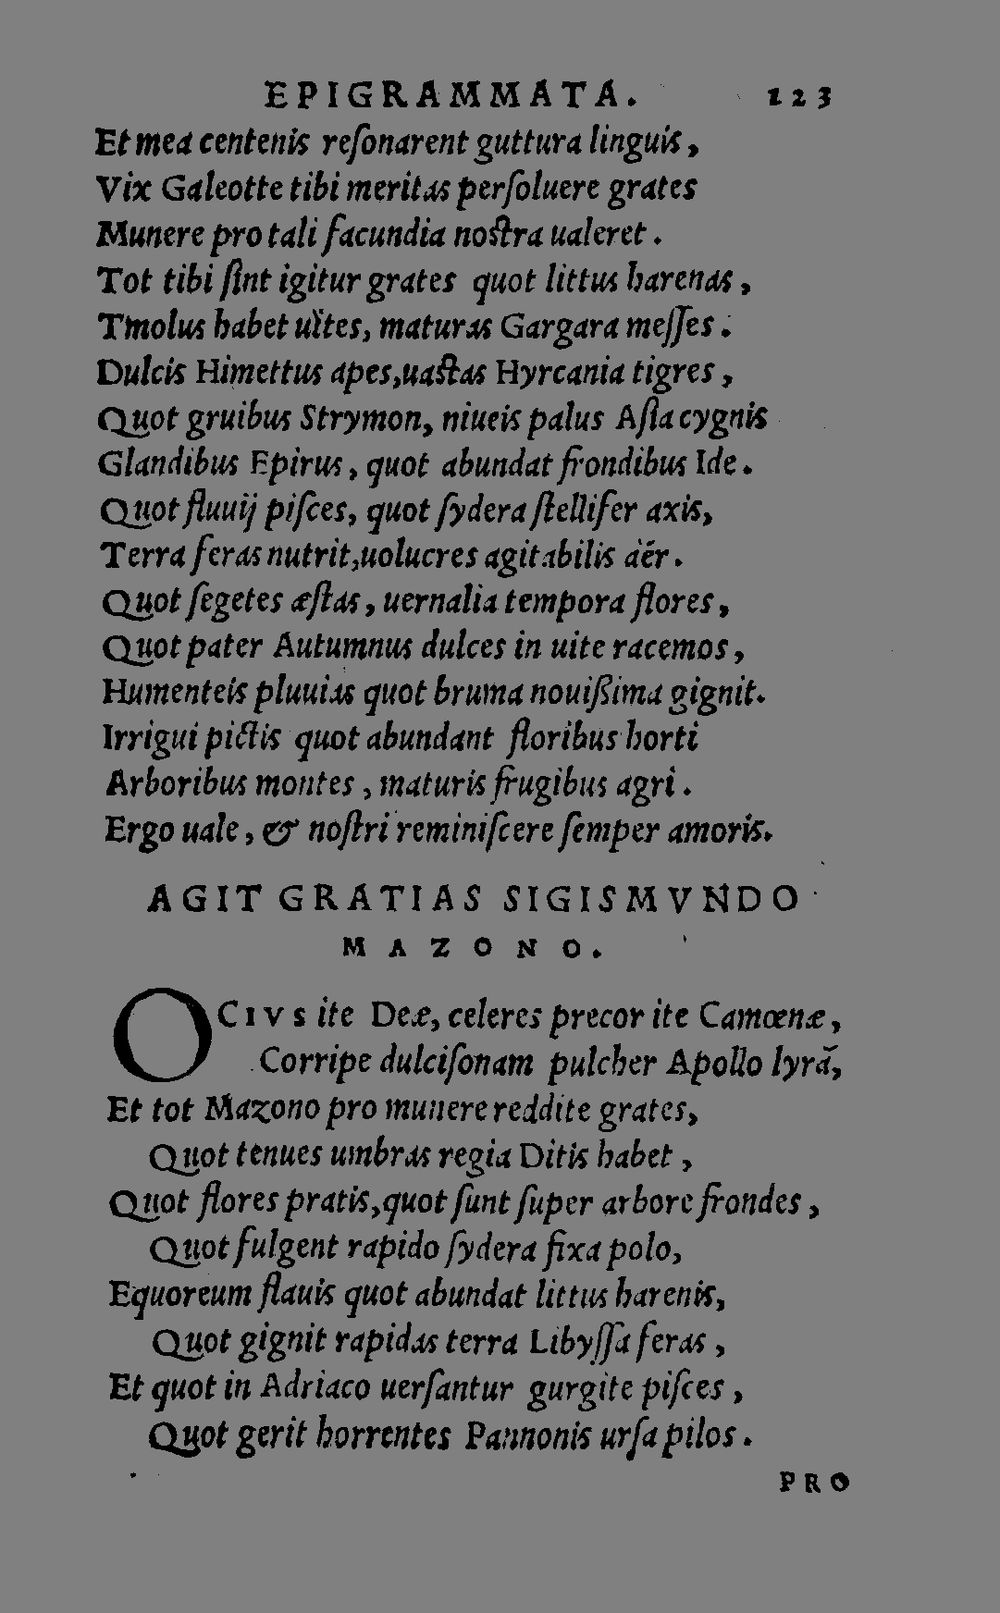 EPIGRAMMATA. 123
Et mea centenis reſonarent guttura linguis,
Vix Galeotte tibi meritas perſoluere grates
Munere pro tali facundia noſtra ualeret.
Tot tibi ſint igitur grates quot littus harenas,
Tmolus habet uites, maturas Gargara meſſes.
Dulcis Himettus apes,uaſtas Hyrcania tigres,
Quot gruibus Strymon, niueis palus Aſia cygnis
Glandibus Epirus, quot abundat frondibus Ide.
Quot fluuij piſces, quot ſydera ſtellifer axis,
Terra feras nutrit,uolucres agitabilis aër.
Quot ſegetes æſtas, uernalia tempora flores,
Quot pater Autumnus dulces in uite racemos,
Humenteis pluuias quot bruma nouißima gignit.
Irrigui pictis quot abundant floribus horti
Arboribus montes, maturis frugibus agri.
Ergo uale, & noſtri reminiſcere ſemper amoris.
AGIT GRATIAS SIGISMVNDO
MAZONO.
OCIVS ite Deæ, celeres precor ite Camœnæ,
Corripe dulciſonam pulcher Apollo lyrā,
Et tot Mazono pro munere reddite grates,
Quot tenues umbras regia Ditis habet,
Quot flores pratis,quot ſunt ſuper arbore frondes,
Quot fulgent rapido ſydera fixa polo,
Equoreum flauis quot abundat littus harenis,
Quot gignit rapidas terra Libyſſa feras,
Et quot in Adriaco uerſantur gurgite piſces,
Quot gerit horrentes Pannonis urſa pilos.
PRO